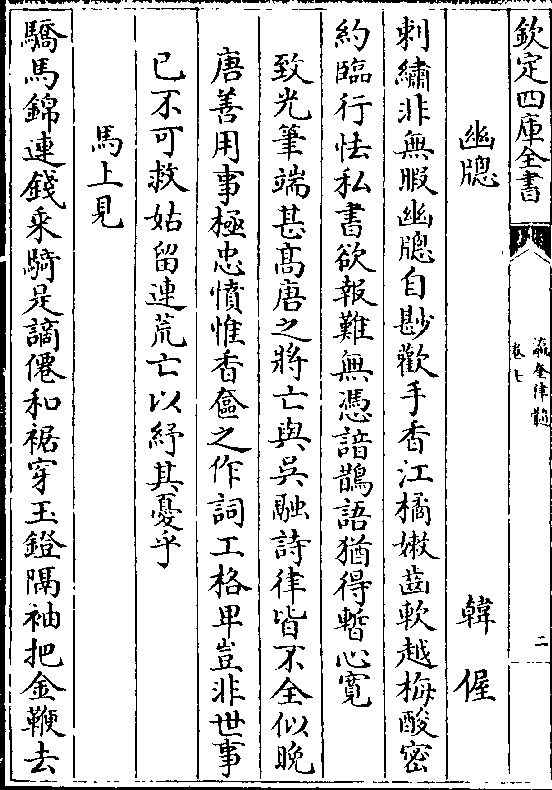 欽定四庫全書
瀛奎律髓
卷七
二
幽牕
韓偓
刺繡非無暇幽牕自尠歡手香江橘嫩齒軟越梅酸密
約臨行怯私書欲報難無憑諳鵲語猶得暫心寛
致光筆端甚髙唐之將亡與吳融詩律皆不全似晚
唐善用事極忠憤惟香奩之作詞工格卑豈非世事
已不可救姑留連荒亡以紓其憂乎
馬上見
驕馬錦連錢乗騎是謫僊和裾穿玉鐙隔袖把金鞭去